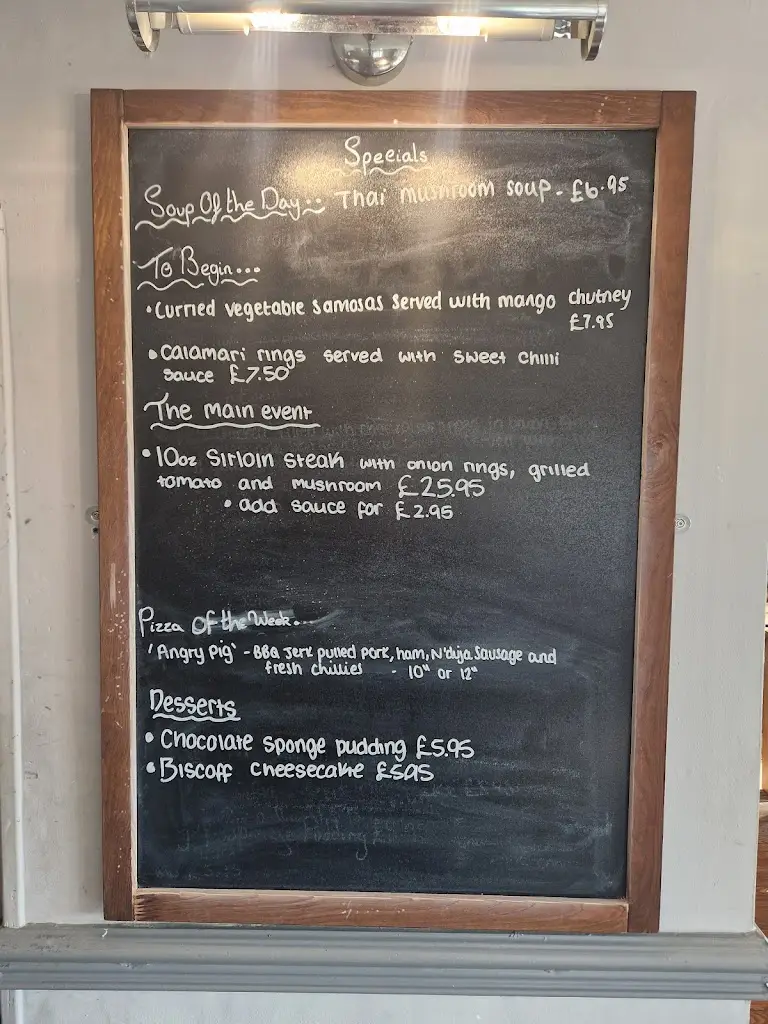 Specials
Soup Of the Day:: Thai mushroom soup - £6.95
To Begin...
• Curried vegetable samosas served with mango chutney
£7.95
• Calamari rings served with sweet chilli
sauce £7.50
The main event
• 10oz Sirloin steak with onion rings, grilled
tomato and mushroom £25.95
• add sauce for £2.95
Pizza Of the Week...
'Angry Pig' - BBQ Jerk pulled pork, ham, N'duja Sausage and
fresh chillies - 10" or 12"
Desserts
• Chocolate sponge pudding £5.95
• Biscoff cheesecake £5.95